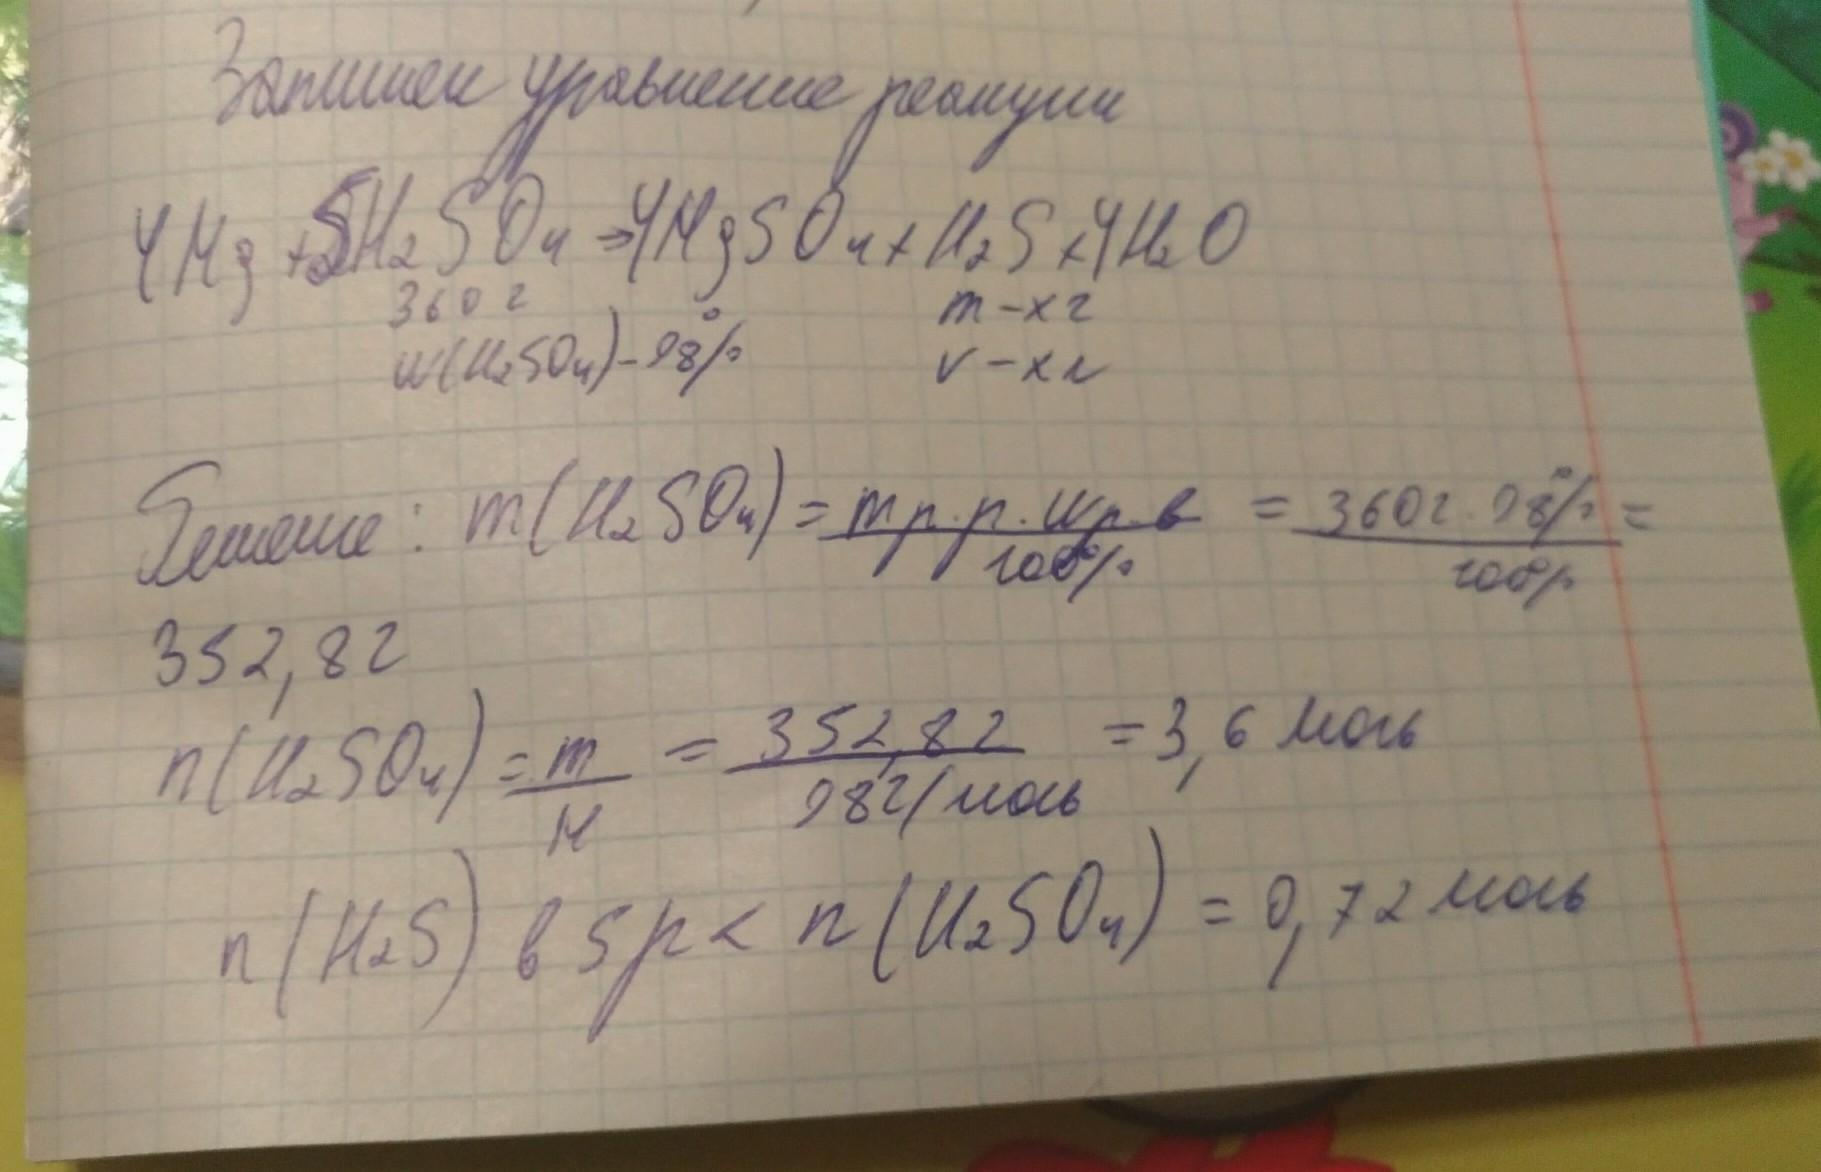 Запишем уравнение реакции
4Mg + 5H₂SO₄ => 4MgSO₄ + H₂S + 4H₂O
360 г m - x г
w(H₂SO₄) - 98% v - x л
Решение: m(H₂SO₄) = mр.р. wр.в / 100% = 360г · 98% / 100% =
352,8г
n(H₂SO₄) = m / M = 352,8г / 98г/моль = 3,6 моль
n(H₂S) в 5 р < n(H₂SO₄) = 0,72 моль